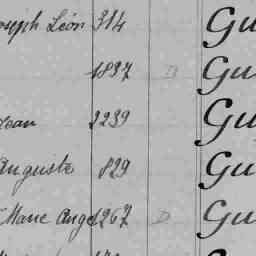 Joseph Léon 314 Gu
1837 D Gu
2239 Gu
Auguste 829 Gu
Marie Ange 1267 D Gu